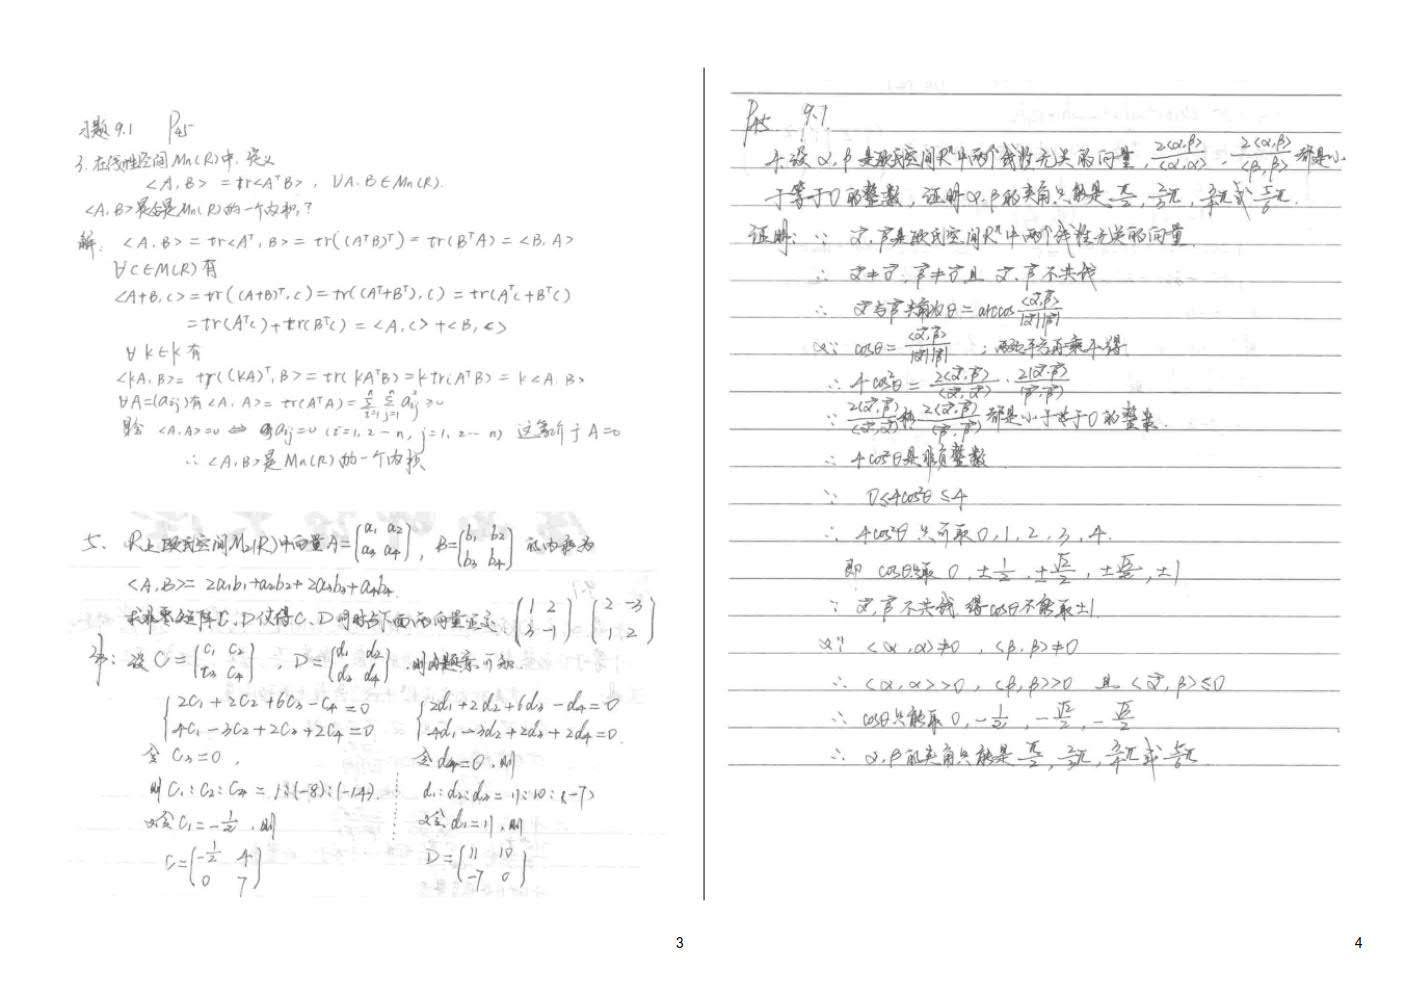 习题9.1 P45
3.在线性空间Mn(R)中,定义
<A,B> =tr<AᵀB>, ∀A.B∈Mn(R).
<A,B>是否是Mn(R)的一个内积?
解: <A,B>=tr<Aᵀ,B>=tr((AᵀB)ᵀ)=tr(BᵀA)=<B,A>
∀C∈M(R)有
<A+B,C>=tr((A+B)ᵀ,C)=tr((Aᵀ+Bᵀ),C)=tr(AᵀC+BᵀC)
=tr(AᵀC)+tr(BᵀC)=<A,C>+<B,C>
∀k∈k有
<kA,B>=tr((kA)ᵀ,B>=tr(kAᵀB)=ktr(AᵀB)=k<A.B>
∀A=(aij)有<A,A>=tr(AᵀA)=∑ⁿᵢ₌₁∑ⁿⱼ₌₁a²ij≥0
且<A,A>=0⇔aij=0(i=1,2…n,j=1,2…n) 这等价于A=0
∴<A,B>是Mn(R)的一个内积
5. R上欧氏空间M₂(R)中向量A=(a₁ a₂ a₃ a₄), B=(b₁ b₂ b₃ b₄)的内积为
<A,B>=2a₁b₁+a₂b₂+2a₃b₃+a₄b₄.
求非零矩阵C,D使得C、D同时与下面两向量正交: (1 2 3 -1) (2 -3 1 2)
解:设C=(c₁ c₂ c₃ c₄), D=(d₁ d₂ d₃ d₄).则由题意可知.
2c₁+2c₂+6c₃-c₄=0 2d₁+2d₂+6d₃-d₄=0
4c₁-3c₂+2c₃+2c₄=0 4d₁-3d₂+2d₃+2d₄=0.
令c₃=0, 令d₄=0,则
则c₁:c₂:c₄=1:(-8):(-14). d₁:d₂:d₃=11:10:(-7)
又令c₁=-1/2,则 又令d₁=11,则
C=(-1/2 4 0 7) D=(11 10 -7 0)
P45 9.1
4.设α,β是欧氏空间Rⁿ中两个线性无关的向量, 2<α,β>/<α,α>, 2<α,β>/<β,β>都是小
于等于0的整数,证明α.β的夹角只能是π/2, 2/3π, 3/4π或5/6π.
证明:∵ α,β是欧氏空间Rⁿ中两个线性无关的向量.
∴ α≠0,β≠0且α.β不共线
∴ α与β夹角为θ=arccos<α,β>/|α||β|
又∵ cosθ=<α,β>/|α||β| ;两边平方再乘4得
∴ 4cos²θ=2<α,β>/<α,α>·2<α,β>/<β,β>
∵ 2<α,β>/<α,α>和2<α,β>/<β,β>都是小于等于0的整数.
∴ 4cos²θ是非负整数
∵ 0≤4cos²θ≤4
∴ 4cos²θ只可取0,1,2,3,4.
即 cosθ只取0,±1/2,±√2/2,±√3/2,±1
∵ α,β不共线 得cosθ不能取±1
又∵ <α,α>≠0 ,<β,β>≠0
∴ <α,α>>0,<β,β>>0 且<α,β>≤0
∴ cosθ只能取0,-1/2,-√2/2,-√3/2
∴ α,β的夹角只能是π/2,2/3π,3/4π或5/6π.
3
4